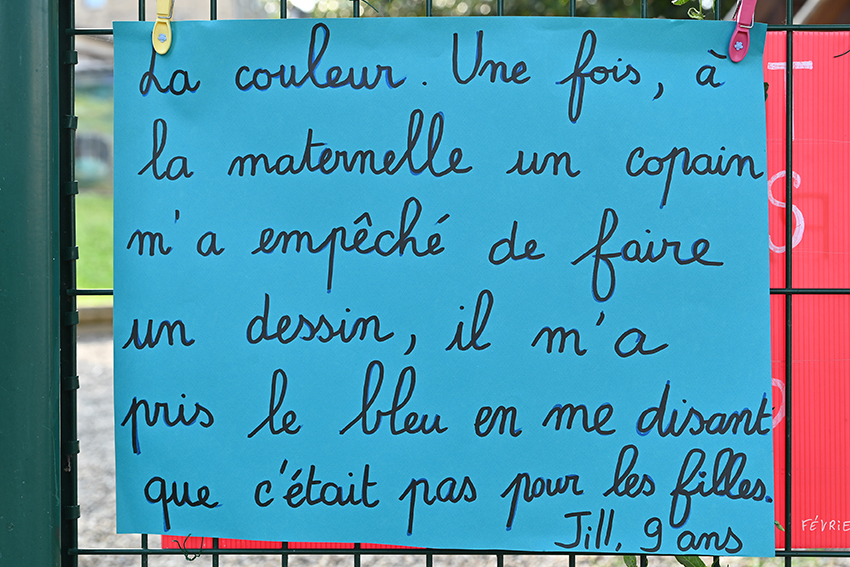 La couleur. Une fois, à
la maternelle un copain
m'a empêché de faire
un dessin, il m'a
pris le bleu en me disant
que c'était pas pour les filles.
Jill, 9 ans